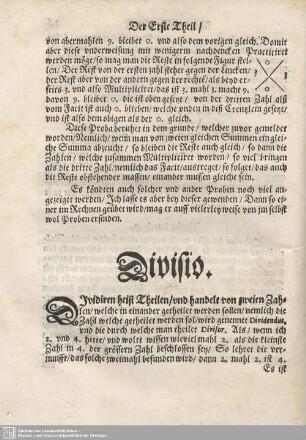 Der Erste Theil/
von abermahlen 9. bleibet 0. und also dem vorigen gleich. Damit
aber diese underweisung mit wenigerm nachdencken Practicirt
werden möge/ so mag man die Reste in folgende Figur stel-
len/ Der Rest von der ersten zahl stehet gegen der lincken/
der Rest aber von der andern gegen der rechte/ als beyd er-
seits 3. und also Multiplicirt/ das ist 3. mahl 3. macht 9.
davon 9. bleibet 0. die ist oben gesetzt/ von der dritten Zahl alß
vom Facit ist auch 0. blieben/ welche unden in diß Creutzlein gesetzt/
und ist also dem obigen als der 0. gleich.
Diese Proba beruhet in dem grunde/ welcher zuvor gemeldet
worden/ Nemlich/ wenn man von zweien gleichen Summen ein glei-
che Summa abzeucht/ so bleiben die Reste auch gleich/ so dann die
Zahlen/ welche zusammen Multiplicirt worden/ so viel bringen
als die dritte Zahl/ nemlich das Facit/ austreget/ so folget/ das auch
die Reste obstehender massen/ einander müssen gleiche sein.
Es köndten auch solcher und ander Proben noch viel an-
gezeiget werden/ Ich lasse es aber bey dieser gewenden/ Dann so ei-
ner im Rechnen geübet wird/ mag er auff vielerley weise von jm selbst
wol Proben erfinden.
Divisio.
DIvidiren heist Theilen/ und handelt von zweien Zah-
len/ welche in einander getheilet werden sollen/ nemlich die
Zahl welche getheilet werden sol/ wird genennet Dividendus,
und die durch welche man theilet Divisor. Als/ wenn ich
2. und 4. hette/ und wolte wissen wieviel mahl 2. als die kleinste
Zahl in 4. der grössern Zahl beschlossen sey/ So lehret die ver-
nunfft/ das solche zweimahl befunden wird/ dann 2. mahl 2. ist 4
Es ist